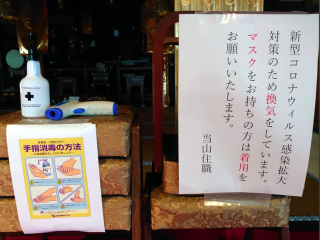 新型コロナウィルス感染拡大
対策のため換気をしています。
マスクをお持ちの方は着用を
お願いいたします。
当山住職
手指消毒の方法